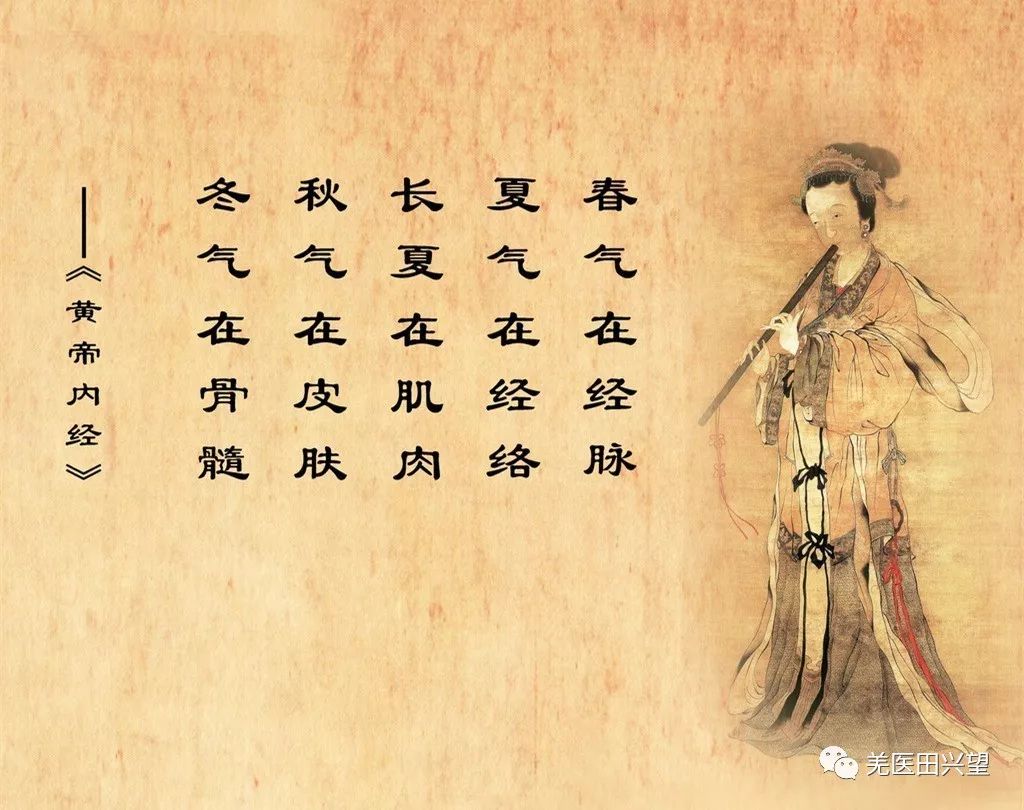 春气在经脉
夏气在经络
长夏在肌肉
秋气在皮肤
冬气在骨髓
——《黄帝内经》
羌医田兴望